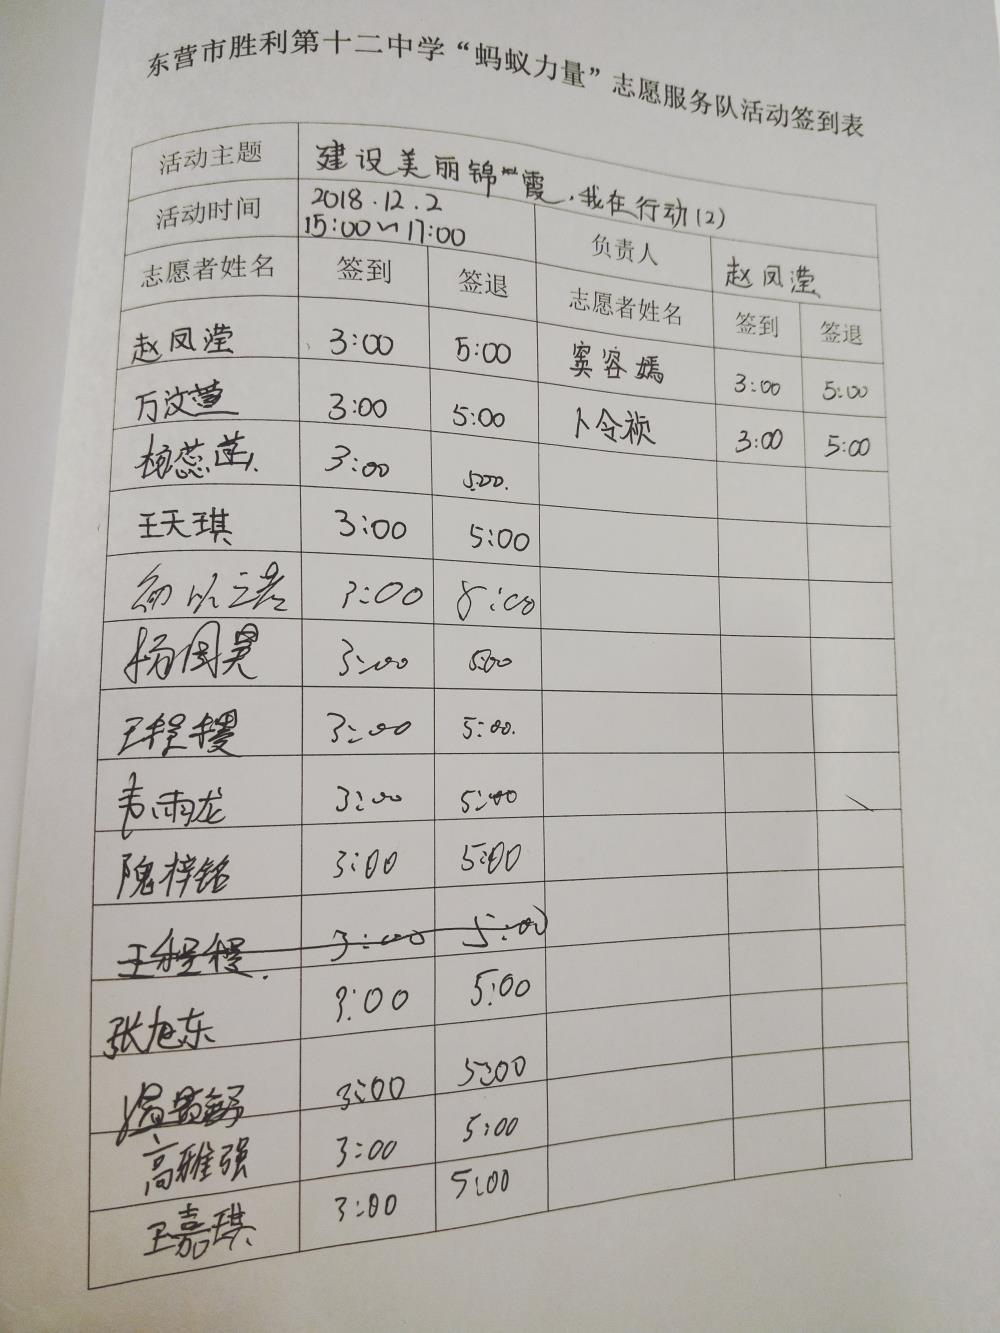 东营市胜利第十二中学“蚂蚁力量”志愿服务队活动签到表
活动主题 建设美丽锦霞，我在行动(2)
活动时间 2018.12.2 15:00~17:00 负责人 赵凤滢
志愿者姓名 签到 签退 志愿者姓名 签到 签退
赵凤滢 3:00 5:00 窦容嫣 3:00 5:00
万汶萱 3:00 5:00 卜令祯 3:00 5:00
杨蕊 3:00 5:00.
王天琪 3:00 5:00
3:00 5:00
杨国昊 3:00 5:00
王程稷 3:00 5:00.
韦雨龙 3:00 5:00
隗梓铭 3:00 5:00
王程稷. 3:00 5:00
张旭东 3:00 5:00
3:00 5:00
高雅强 3:00 5:00
王嘉琪 3:00 5:00